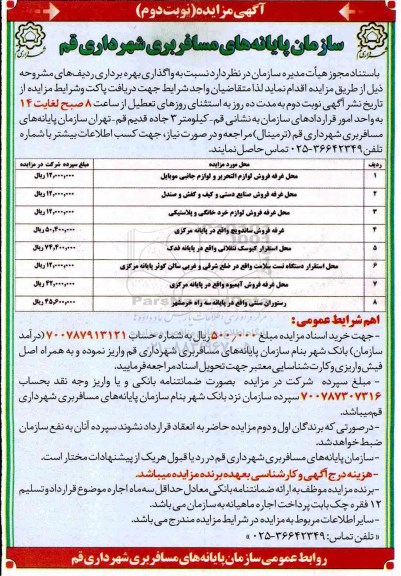 آگهی مزایده (نوبت دوم)
سازمان پایانه‌های مسافربری شهرداری قم
باستناد مجوز هیأت مدیره سازمان در نظر دارد نسبت به واگذاری بهره برداری ردیف‌های مشروحه
ذیل از طریق مزایده اقدام نماید لذا متقاضیان واجد شرایط جهت دریافت پاکت و شرایط مزایده از
تاریخ نشر آگهی نوبت دوم به مدت ده روز به استثنای روزهای تعطیل از ساعت ۸ صبح لغایت ۱۴
به واحد امور قراردادهای سازمان به نشانی قم - کیلومتر ۳ جاده قدیم قم - تهران سازمان پایانه‌های
مسافربری شهرداری قم (ترمینال) مراجعه و در صورت نیاز، جهت کسب اطلاعات بیشتر با شماره
تلفن ۳۶۶۴۲۳۴۹-۰۲۵ تماس حاصل نمایند.
ردیف محل مورد مزایده مبلغ سپرده شرکت در مزایده
۱ محل غرفه فروش لوازم التحریر و لوازم جانبی موبایل ۱۲,۰۰۰,۰۰۰ ریال
۲ محل غرفه فروش صنایع دستی و کیف و کفش و صندل ۱۲,۰۰۰,۰۰۰ ریال
۳ محل غرفه فروش لوازم خرد خانگی و پلاستیکی ۱۲,۰۰۰,۰۰۰ ریال
۴ غرفه فروش ساندویچ واقع در پایانه مرکزی ۵۰,۴۰۰,۰۰۰ ریال
۵ محل استقرار کیوسک تنقلاتی واقع در پایانه فدک ۷۴,۴۰۰,۰۰۰ ریال
۶ محل استقرار دستگاه تست سلامت واقع در ضلع شرقی و غربی سالن کوثر پایانه مرکزی ۱۲,۰۰۰,۰۰۰ ریال
۷ محل غرفه فروش آبمیوه واقع در پایانه مرکزی ۴۲,۰۰۰,۰۰۰ ریال
۸ رستوران سنتی واقع در پایانه سه راه خرمشهر ۴۵,۶۰۰,۰۰۰ ریال
اهم شرایط عمومی:
- جهت خرید اسناد مزایده مبلغ ۵۰۰/۰۰۰ ریال به شماره حساب ۷۰۰۷۸۷۹۱۳۱۲۱ (درآمد
سازمان) بانک شهر بنام سازمان پایانه‌های مسافربری شهرداری قم واریز نموده و به همراه اصل
فیش واریزی و کارت شناسایی معتبر جهت تحویل اسناد مراجعه فرمایید.
- مبلغ سپرده شرکت در مزایده بصورت ضمانتنامه بانکی و یا واریز وجه نقد بحساب
۷۰۰۷۸۷۳۰۷۳۱۶ سپرده سازمان نزد بانک شهر بنام سازمان پایانه‌های مسافربری شهرداری
قم میباشد.
- در صورتی که برندگان اول و دوم مزایده حاضر به انعقاد قرارداد نشوند سپرده آنان به نفع سازمان
ضبط خواهد شد.
- سازمان پایانه‌های مسافربری شهرداری قم در رد یا قبول هر یک از پیشنهادات مختار است.
- هزینه درج آگهی و کارشناسی بعهده برنده مزایده میباشد.
- برنده مزایده موظف به ارائه ضمانتنامه بانکی معادل حداقل سه ماه اجاره موضوع قرارداد و تسلیم
۱۲ فقره چک بابت پرداخت اجاره ماهیانه به سازمان می باشد.
- سایر اطلاعات مربوط به مزایده در شرایط مزایده مندرج می باشد.
« تلفن تماس: ۳۶۶۴۲۳۴۹-۰۲۵ »
روابط عمومی سازمان پایانه‌های مسافربری شهرداری قم